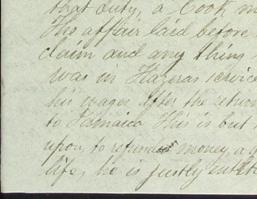 that duty, a Cook
The affair laid before
claim and any thing
was in service
his wages after the return
to Jamaica This is but
upon, to refund money, a
life, he is justly entitled